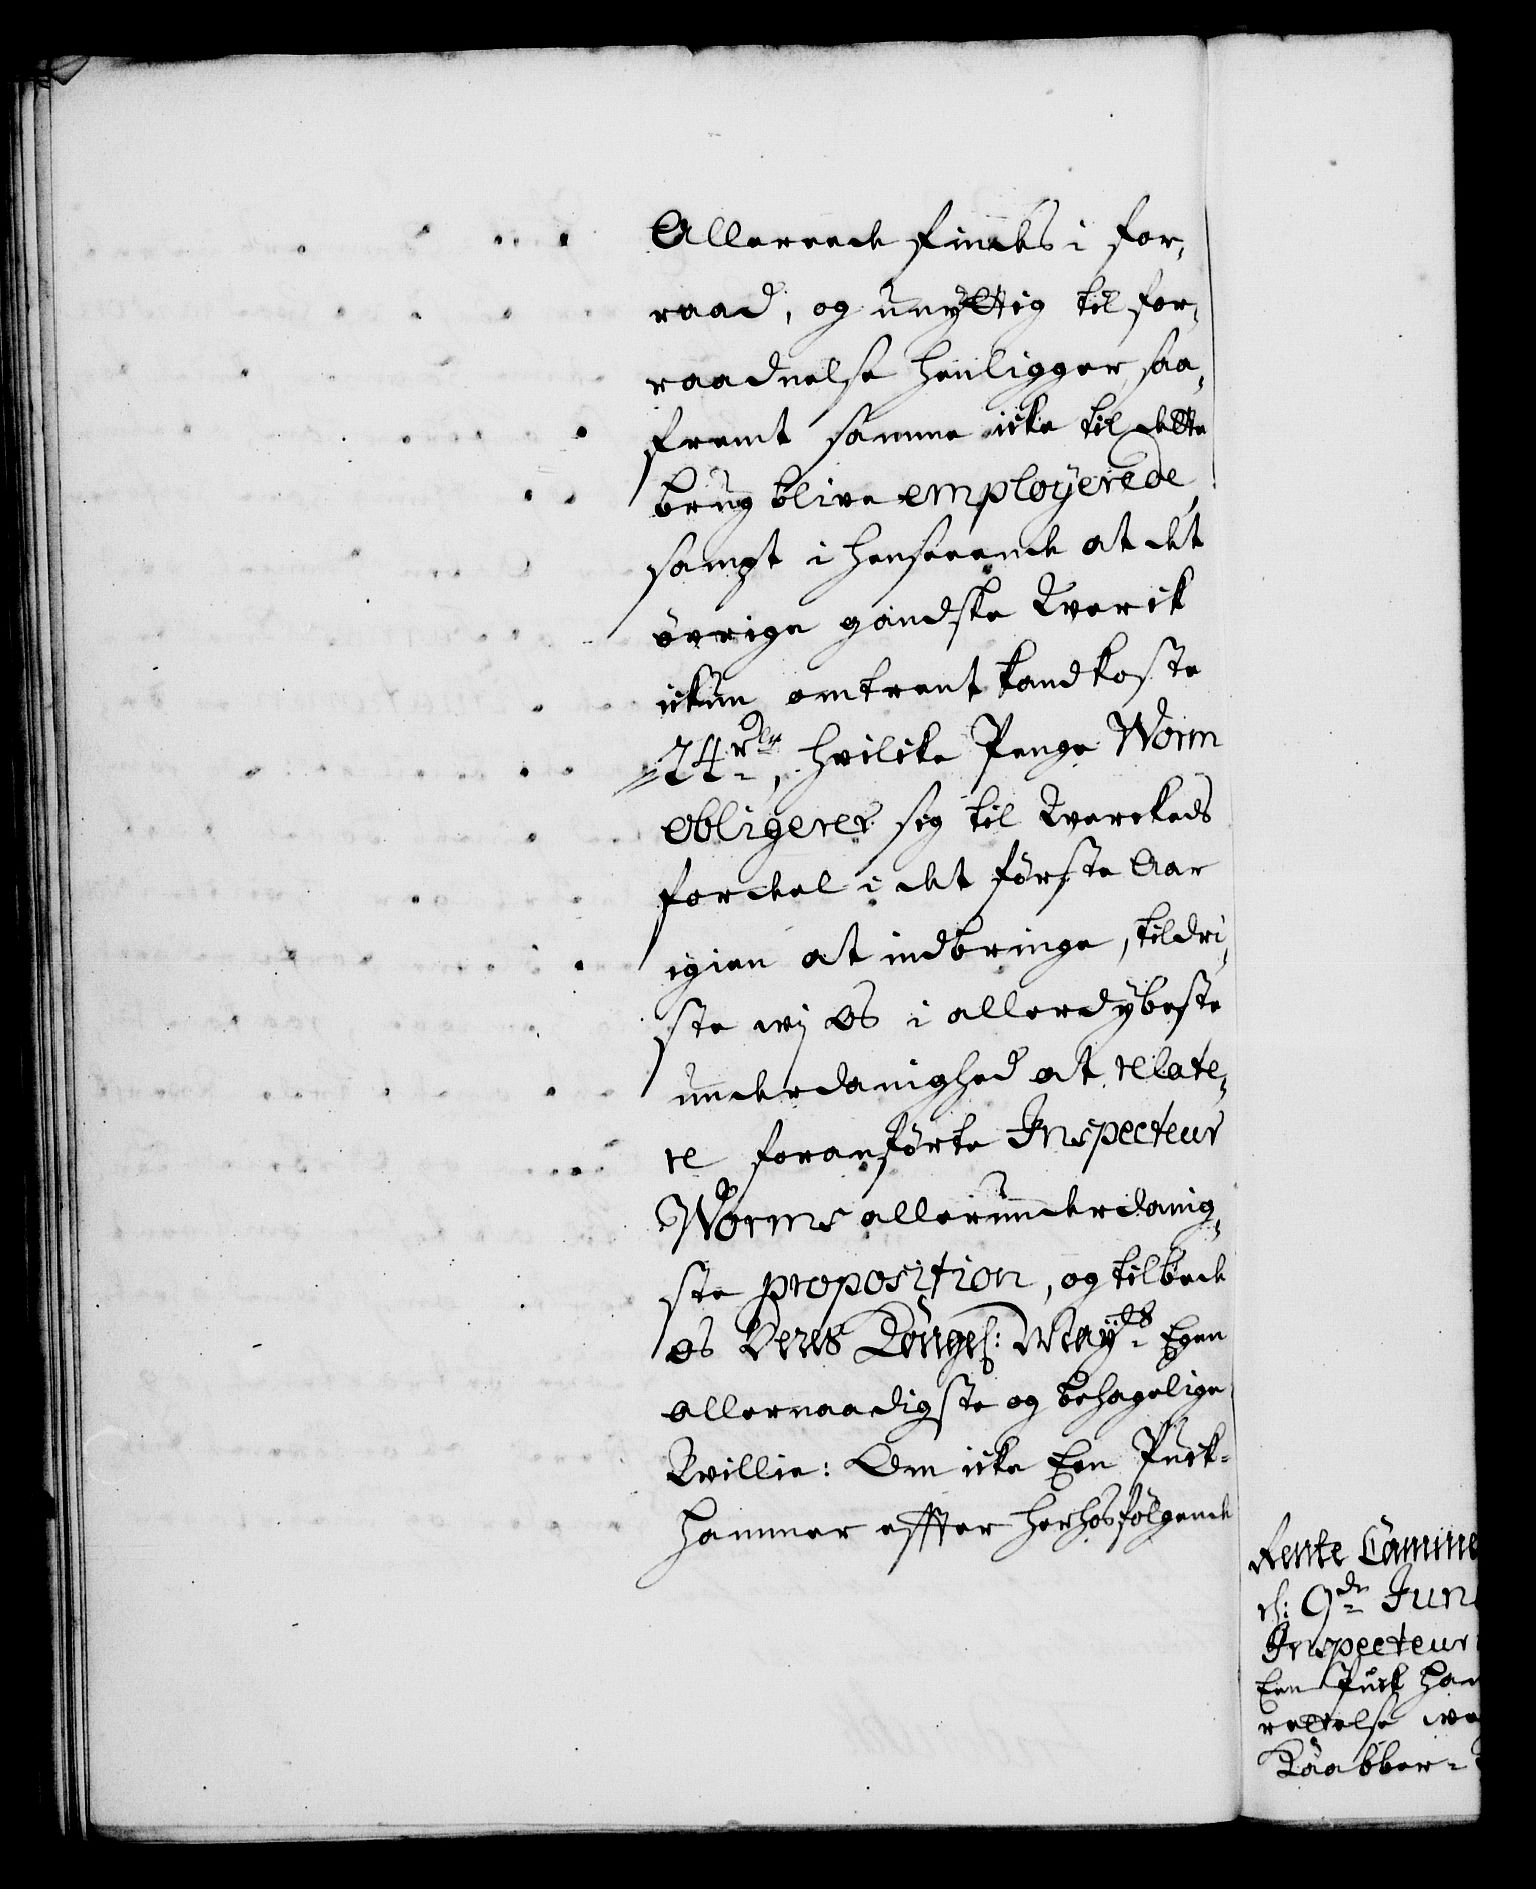 Allereede findes i for-
raad, og unyttig til for-
raadnelse henligger, saa-
fremt samme icke til dette
brug blive employerede,
sampt i henseende at det
övrige gandske Werck
ickun omtrent kand koste
24 rdlr, hvilcke Penge Worm
obligerer sig til Werckeds
fordeel i det förste Aar
igien at indbringe, tildri-
ste wj os i allerdybeste
underdanighed at relate-
re foranförte Inspecteur
Worms allerunderdanig-
ste proposition, og tilbede
os Deres Kongel: May:ts Egen
allernaadigste og behagelige
Willie: Om icke Een Puck-
hammer effter herhosfölgende
Rente Camme
d: 9de Jun
Inspecteur
Een Puck ham
rettelse we
Kaabber-